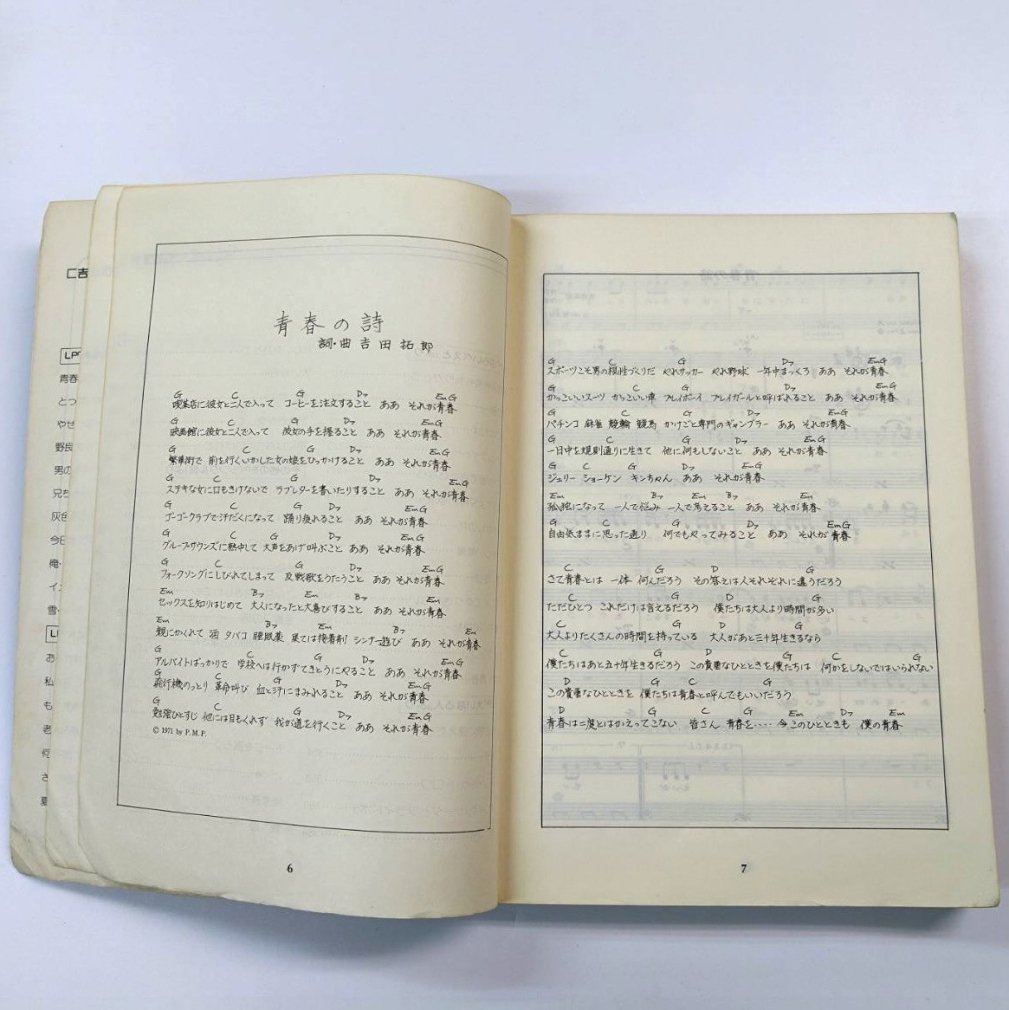 青春の詩
詞・曲 吉田拓郎
G C G D7 Em G
喫茶店に彼女と二人で入って コーヒーを注文すること ああ それが青春
G C G D7 Em G
映画館に彼女と二人で入って 彼女の手を握ること ああ それが青春
G C G D7 Em G
繁華街で 前を行くいかした女の娘をひっかけること ああ それが青春
G C G D7 Em G
ステキな女に口もきけないで ラブレターを書いたりすること ああ それが青春
G C G D7 Em G
ゴーゴークラブで汗だくになって 踊り疲れること ああ それが青春
G C G D7 Em G
グループサウンズに熱中して 大声をあげ叫ぶこと ああ それが青春
G C G D7 Em G
フォークソングにしびれてしまって 反戦歌をうたうこと ああ それが青春
Em Em B7 B7 Em
セックスを知りはじめて 大人になったと大喜びすること ああ それが青春
Em B7 Em B7 Em
親にかくれて 酒 タバコ 睡眠薬 果ては接着剤 シンナー遊び ああ それが青春
G C G D7 Em G
アルバイトばっかりで 学校へは行かずてきとうにやること ああ それが青春
G C G D7 Em G
飛行機のっとり 革命叫び 血と汗にまみれること ああ それが青春
G C G D7 Em G
勉強ひとすじ 他には目もくれず 我が道を行くこと ああ それが青春
© 1971 by P.M.P.
6
G C G D7 Em G
スポーツこそ男の根性づくりだ やれサッカー やれ野球 一年中まっくろ ああ それが青春
G C G D7 Em G
かっこいいスーツ かっこいい車 プレイボーイ プレイガールと呼ばれること ああ それが青春
G C G D7 Em G
パチンコ 麻雀 競輪 競馬 かけごと専門のギャンブラー ああ それが青春
G C G D7 Em G
一日中を規則通りに生きて 他に何もしないこと ああ それが青春
G C G D7 Em G
ジュリー ショーケン キンちゃん ああ それが青春
Em B7 Em B7 Em
孤独になって 一人で悩み 一人で考えること ああ それが青春
G C G D7 Em G
自由気ままに思った通り 何でもやってみること ああ それが青春
G C G D G
さて青春とは 一体 何んだろう その答えは人それぞれに違うだろう
C G D G
ただひとつ これだけは言えるだろう 僕たちは大人より時間が多い
C G D G
大人よりたくさんの時間を持っている 大人があと三十年生きるなら
C G D G C G
僕たちはあと五十年生きるだろう この貴重なひとときを僕たちは 何かをしないではいられない
D G C G
この貴重なひとときを 僕たちは青春と呼んでもいいだろう
D G C G Em D Em
青春は二度とはかえってこない 皆さん 青春を‥‥ 今このひとときも 僕の青春
7
□吉
青春
とつ
やせ
野良
男の
兄ち
灰色
今日
俺